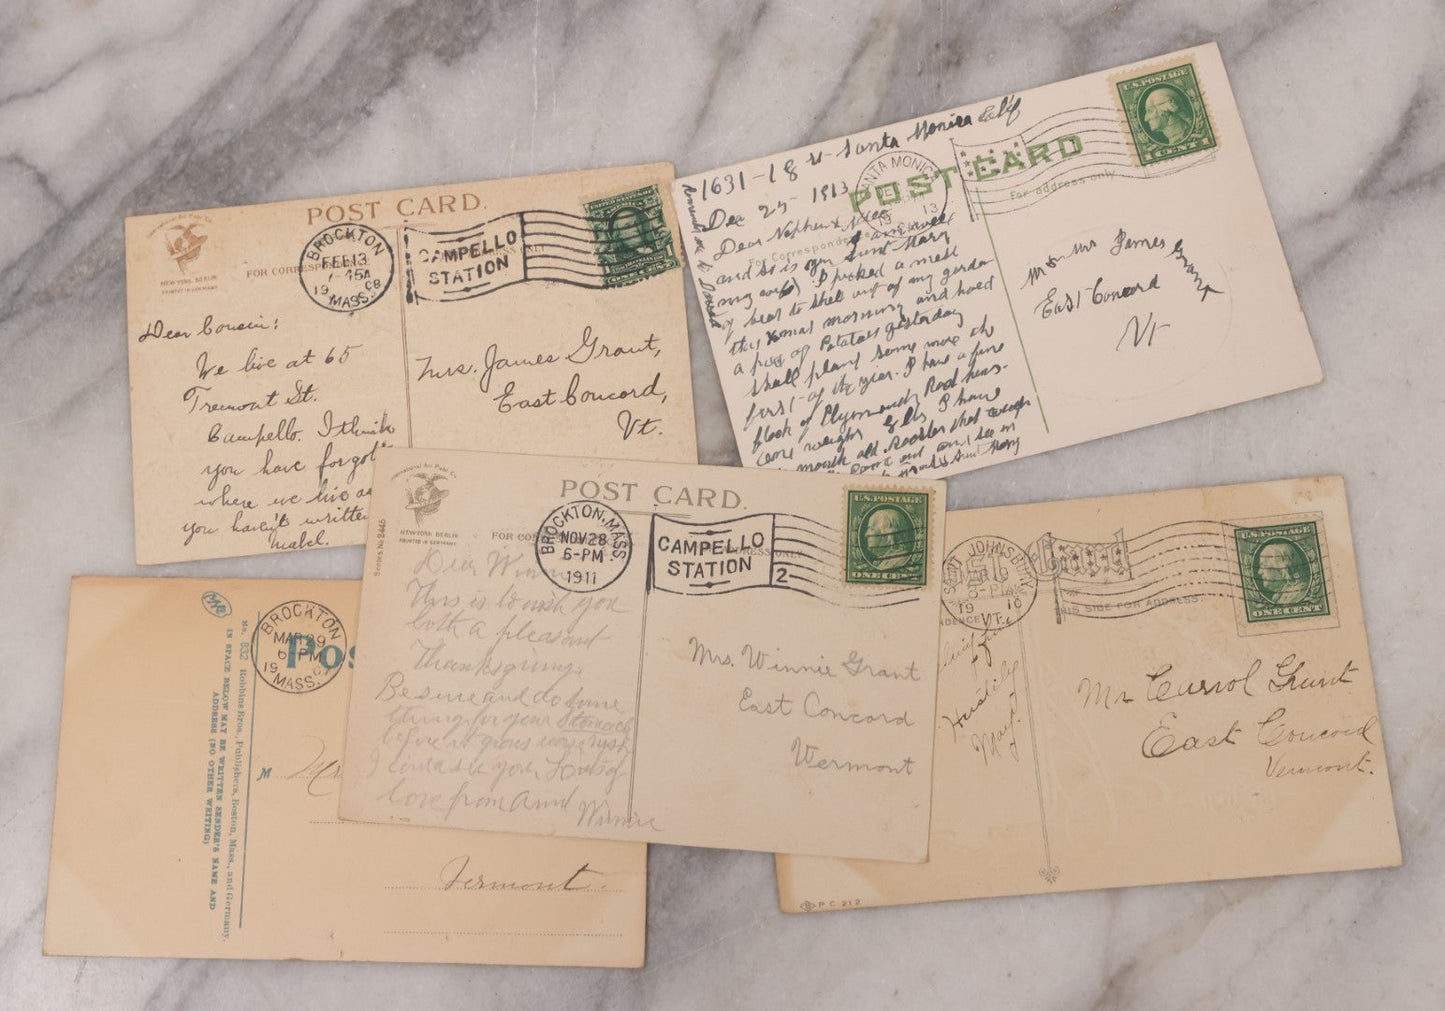 POST CARD.
NEW YORK BERLIN
PRINTED IN GERMANY
FOR CORRES
BROCKTON
FEB 13
19 08
MASS.
CAMPELLO
STATION
ONE CENT
Dear Cousin:
We live at 65
Tremont St.
Campello. I think
you have forgot
where we live as
you haven't written
Mabel.
Mrs. James Grant,
East Concord,
Vt.
1631-18 St Santa Monica Calif
POST CARD
For address only
For Correspondence
SANTA MONICA
DEC
19 13
U.S. POSTAGE
1 CENT 1
Dec 25 - 1913
Dear Nephew &
I am well
and so is your Aunt Mary
my wife. I picked a mess
of beas to shell out of my garden
this Xmas morning and hoed
a of Potatoes yesterday
shall plant some more the
first of the year. I have a fine
flock of Plymouth Rock hens.
I have
month old Rooster that
come out and see
Mr & Mrs James Grant
East Concord
Vt
International Art Pub. Co.
NEW-YORK BERLIN
PRINTED IN GERMANY
Series No 2445
POST CARD.
FOR CO
ADDRESS ONLY
BROCKTON, MASS.
NOV 28
6-PM
1911
CAMPELLO
STATION
2
U.S. POSTAGE
ONE CENT
Dear Winnie
This is to wish you
both a pleasant
Thanksgiving.
Be sure and do some
thing for your stomach
before it grows worse
I would see you. Lots of
love from Aunt
Winnie
Mrs. Winnie Grant.
East Concord
Vermont
SAINT JOHNSBURY
6-PM
19 10
VT.
Card
THIS SIDE FOR ADDRESS.
U.S. POSTAGE
ONE CENT
Hastily
May.
Mr Carrol Grant
East Concord
Vermont.
P.C. 212
BROCKTON
MAR 29
6 PM
19
MASS.
Pos
No. 632 Robbins Bros., Publishers, Boston, Mass., and Germany.
IN SPACE BELOW MAY BE WRITTEN SENDER'S NAME AND
ADDRESS (NO OTHER WRITING)
M Mr
Vermont.